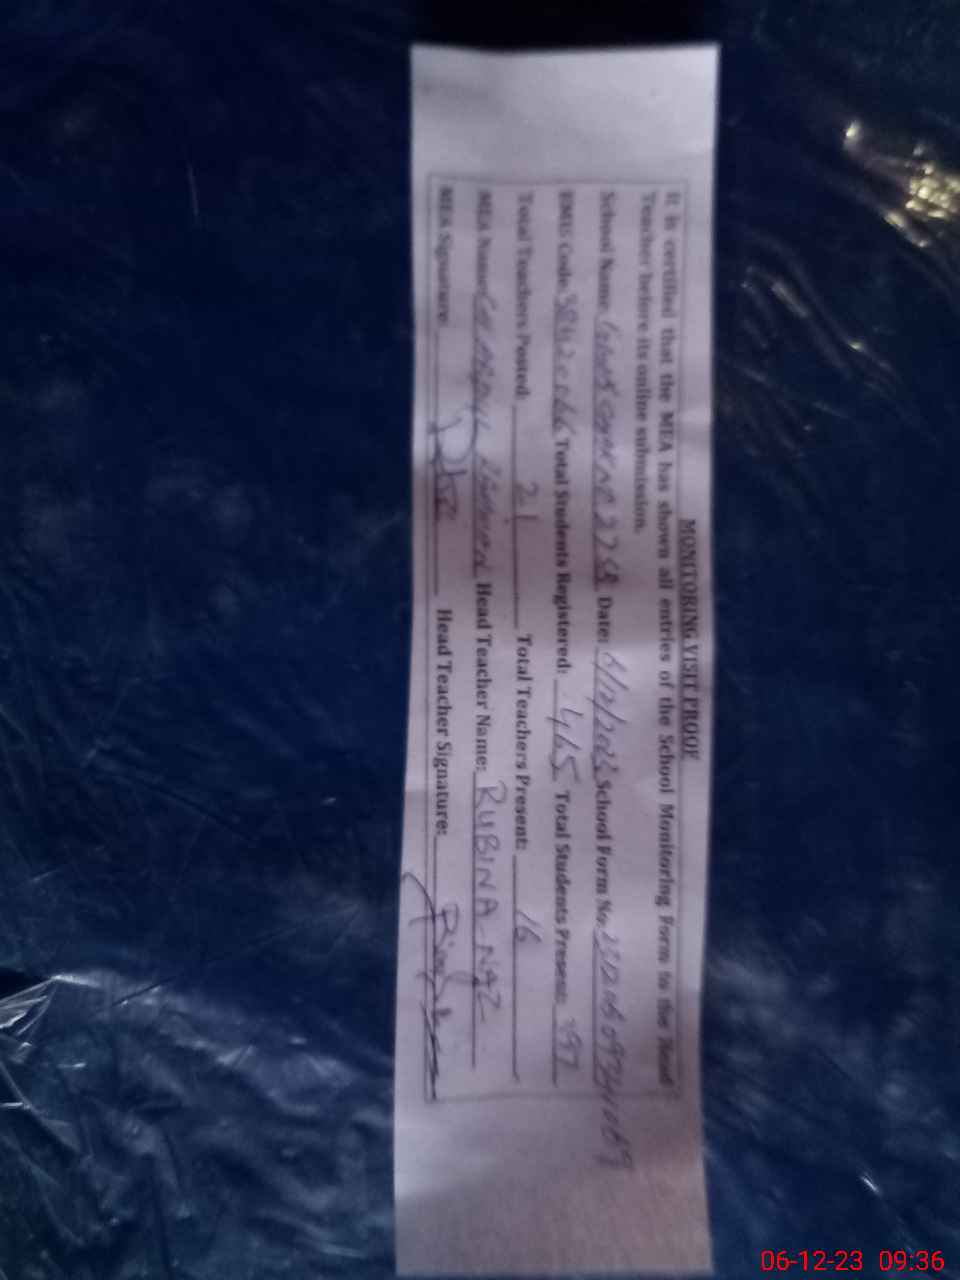 MONITORING VISIT PROOF
It is certified that the MEA has shown all entries of the School Monitoring Form to the Head
Teacher before its online submission.
School Name: Date: 6/12/2023 School Form No.
EMIS Code: Total Students Registered: 465 Total Students Present: 397
Total Teachers Posted: 21 Total Teachers Present: 16
MEA Name: Head Teacher Name: RUBINA NAZ
MEA Signature: Head Teacher Signature:
06-12-23 09:36